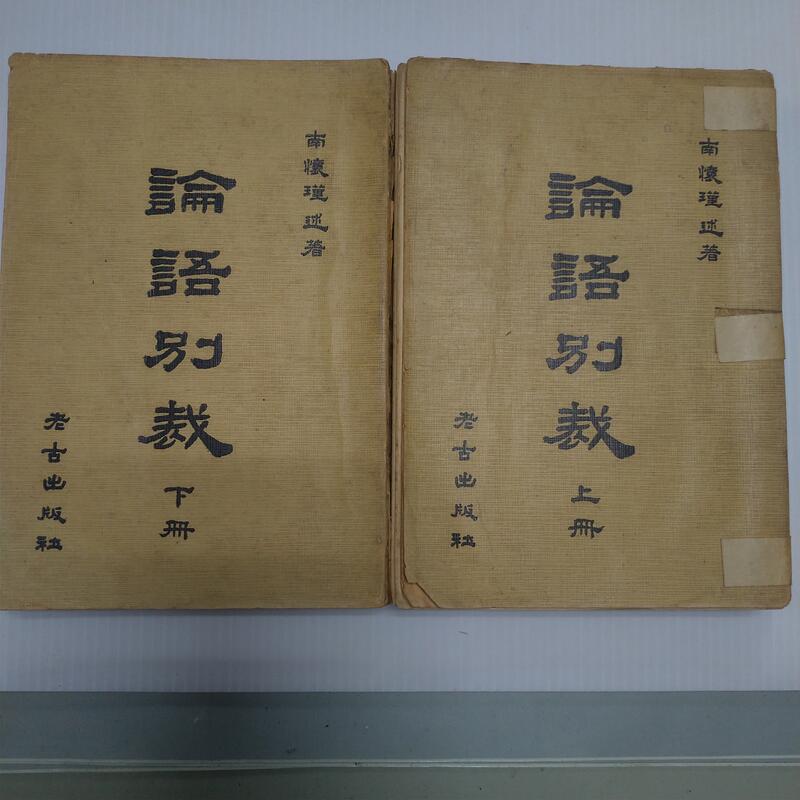 南懷瑾述著
論語別裁
上冊
老古出版社
南懷瑾述著
論語別裁
下冊
老古出版社